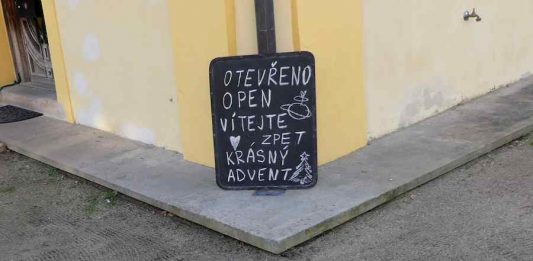 OTEVŘENO
OPEN
VÍTEJTE
ZPET
KRÁSNÝ
ADVENT